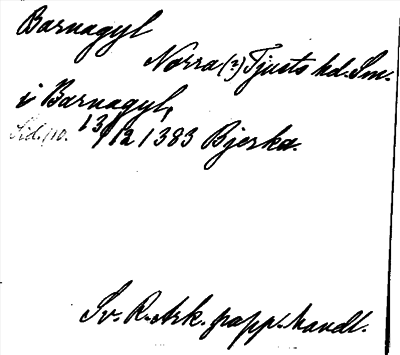 Barnagyl
Norra (?) Tjusts hd. Sm.
i Barnagyl,
Sid. 110. 13/12 1383 Bjerka.
Sv. R. Ark. papp. handl.